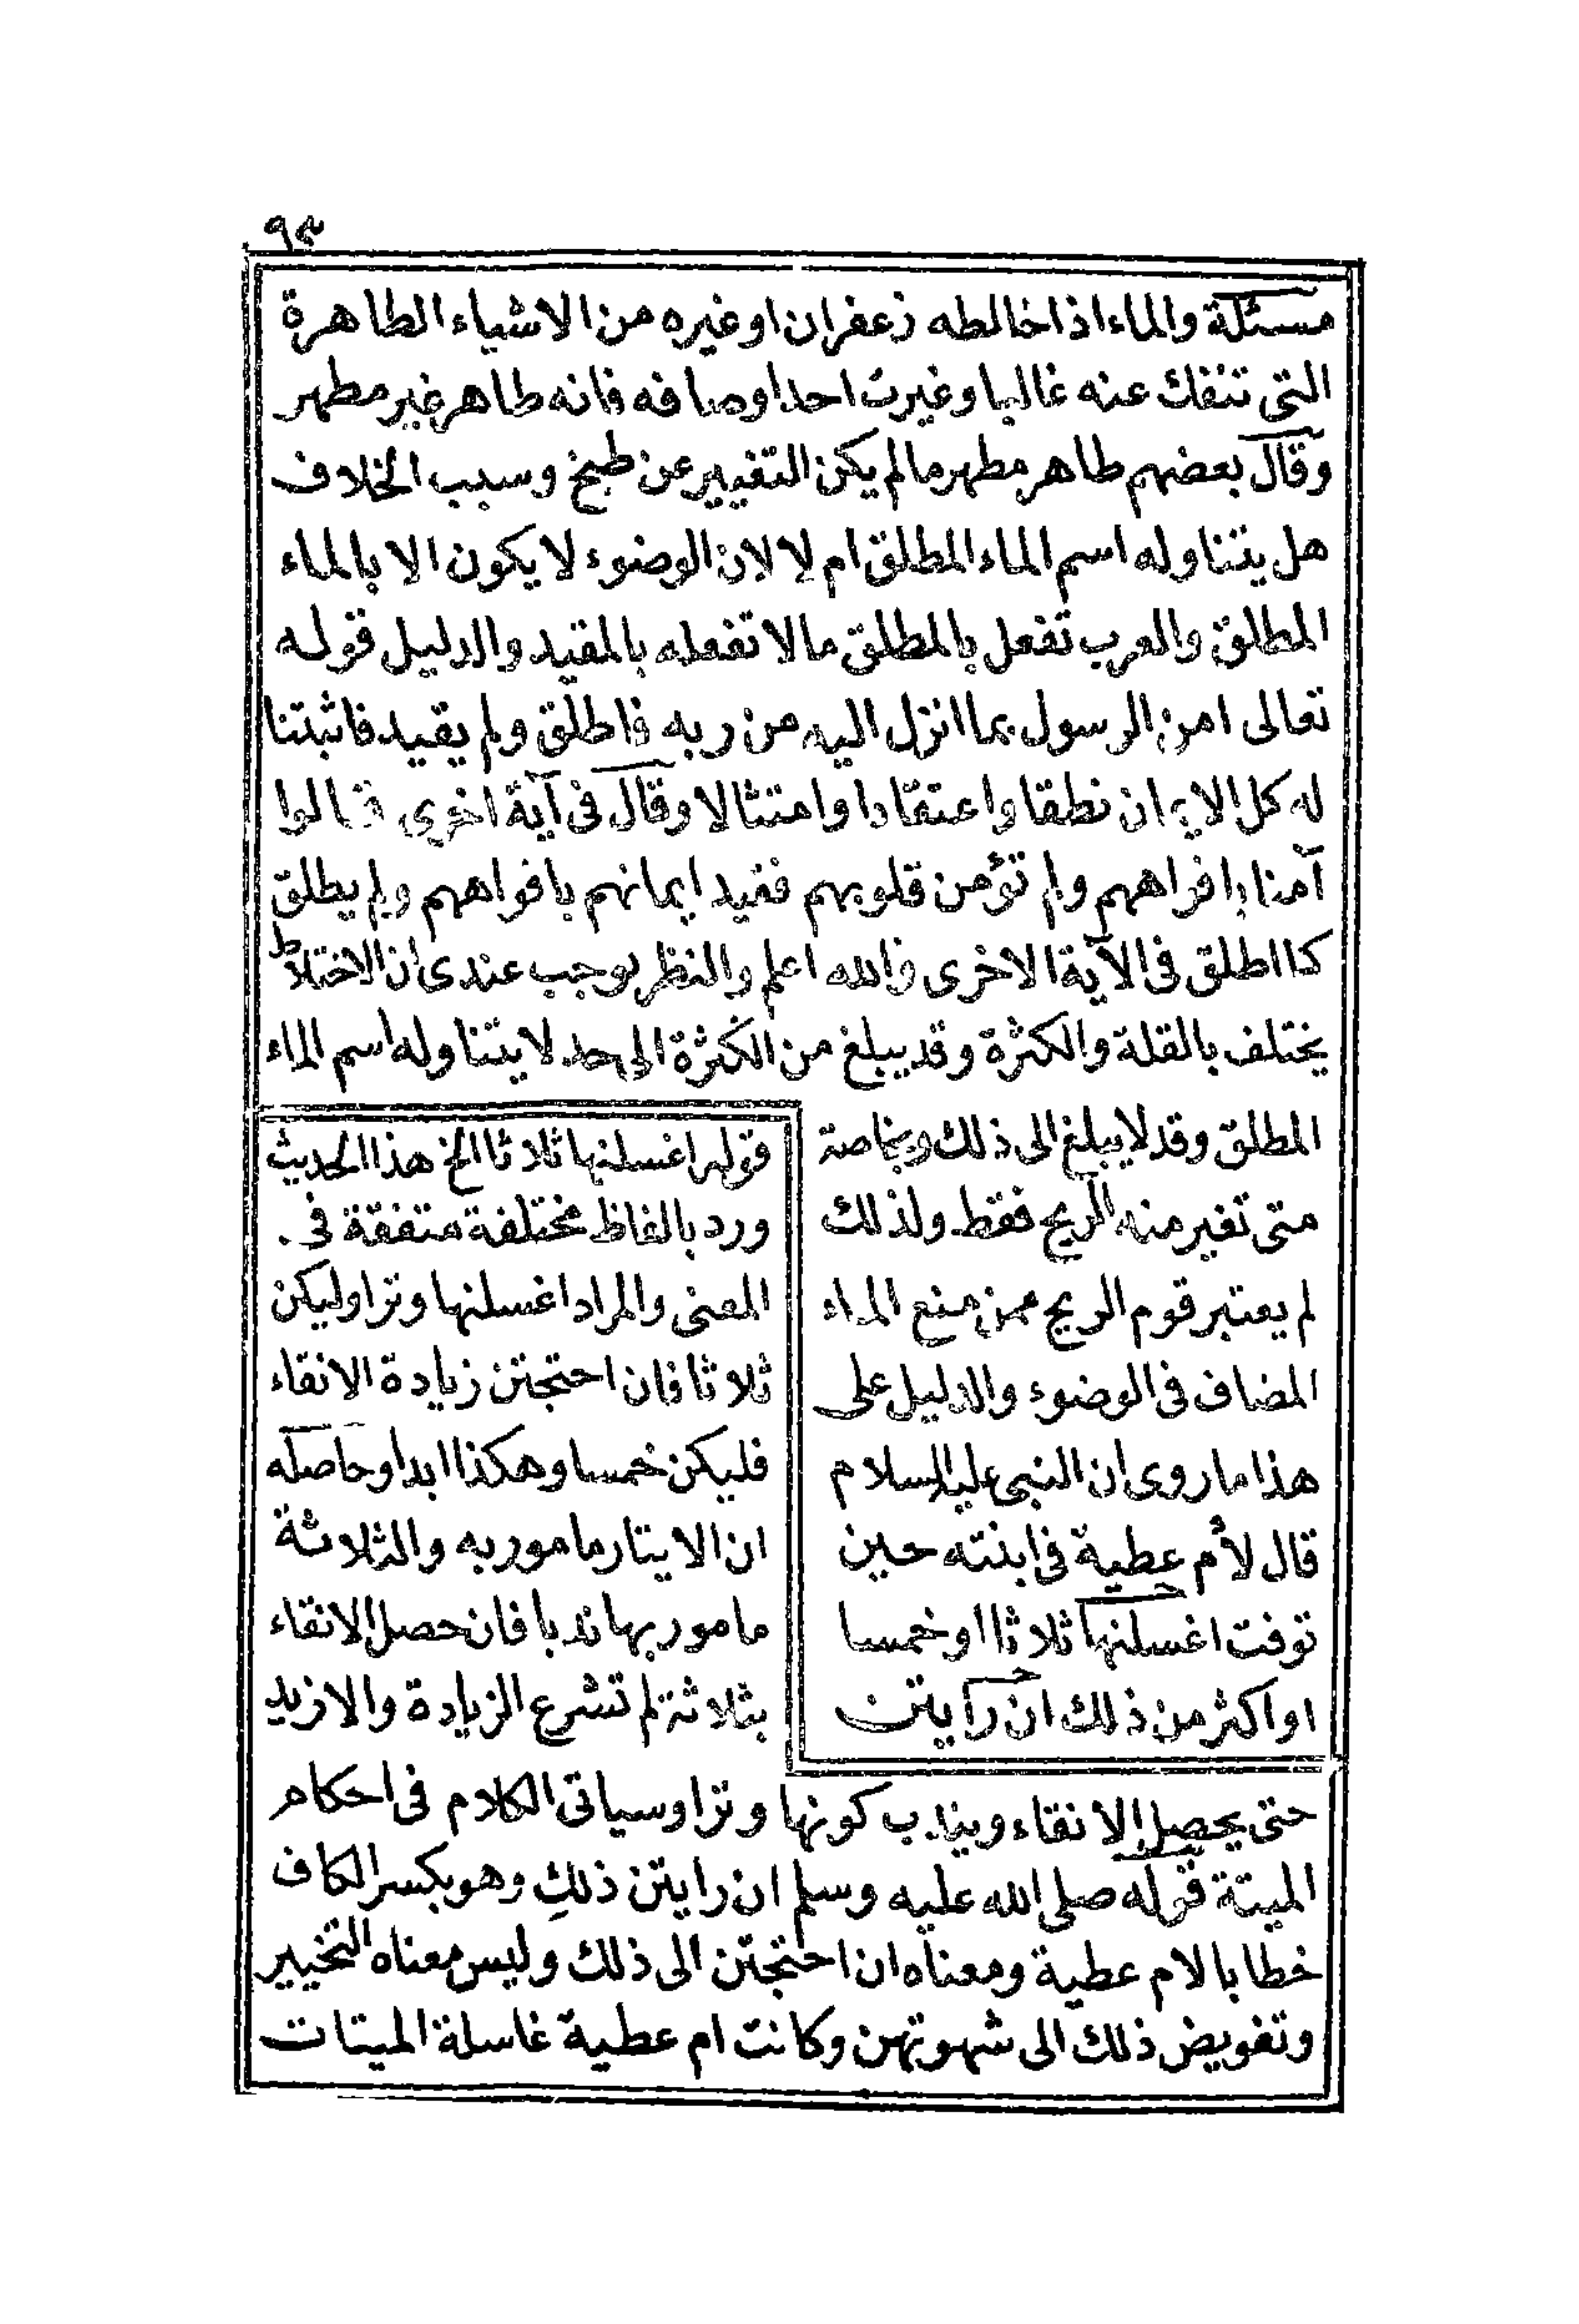 ٩٣
مسئلة والماء اذا خالطه زعفران او غيره من الاشياء الطاهرة
التى تنفك عنه غالبا وغيرت احد اوصافه فانه طاهر غير مطهر
وقال بعضهم طاهر مطهر مالم يكن التغيير عن طبخ وسبب الخلاف
هل يتناوله اسم الماء المطلق ام لا لان الوضوء لا يكون الا بالماء
المطلق والعرب تفعل بالمطلق مالا تفعله بالمقيد والدليل قوله
تعالى امن الرسول بما انزل اليه من ربه فاطلق ولم يقيد فاثبتنا
له كل الايمان نطقا واعتقادا وامتثالا وقال فى آية اخرى قالوا
آمنا بافواههم ولم تؤمن قلوبهم فقيد ايمانهم بافواههم ولم يطلق
كما اطلق فى الآية الاخرى والله اعلم والنظر يوجب عندى ان الاختلاط
يختلف بالقلة والكثرة وقد يبلغ من الكثرة الى حد لا يتناوله اسم الماء
المطلق وقد لا يبلغ الى ذلك وبخاصة
متى تغير منه الريح فقط ولذلك
لم يعتبر قوم الريح ممن منع الماء
المضاف فى الوضوء والدليل على
هذا ما روى ان النبى عليه السلام
قال لأم عطية فى ابنته حين
توفت اغسلنها ثلاثا او خمسا
او اكثر من ذلك ان رايتن
قوله اغسلنها ثلاثا الخ هذا الحديث
ورد بالفاظ مختلفة متفقة فى
المعنى والمراد اغسلنها وترا وليكن
ثلاثا فان احتجتن زيادة الانقاء
فليكن خمسا وهكذا ابدا وحاصله
ان الايتار مامور به والثلاثة
مامور بها ندبا فان حصل الانقاء
بثلاثة لم تشرع الزيادة والا زيد
حتى يحصل الانقاء ويندب كونها وترا وسياتى الكلام فى احكام
الميتة قوله صلى الله عليه وسلم ان رايتن ذلكِ وهو بكسر الكاف
خطابا لام عطية ومعناه ان احتجتن الى ذلك وليس معناه التخيير
وتفويض ذلك الى شهوتهن وكانت ام عطية غاسلة الميتات